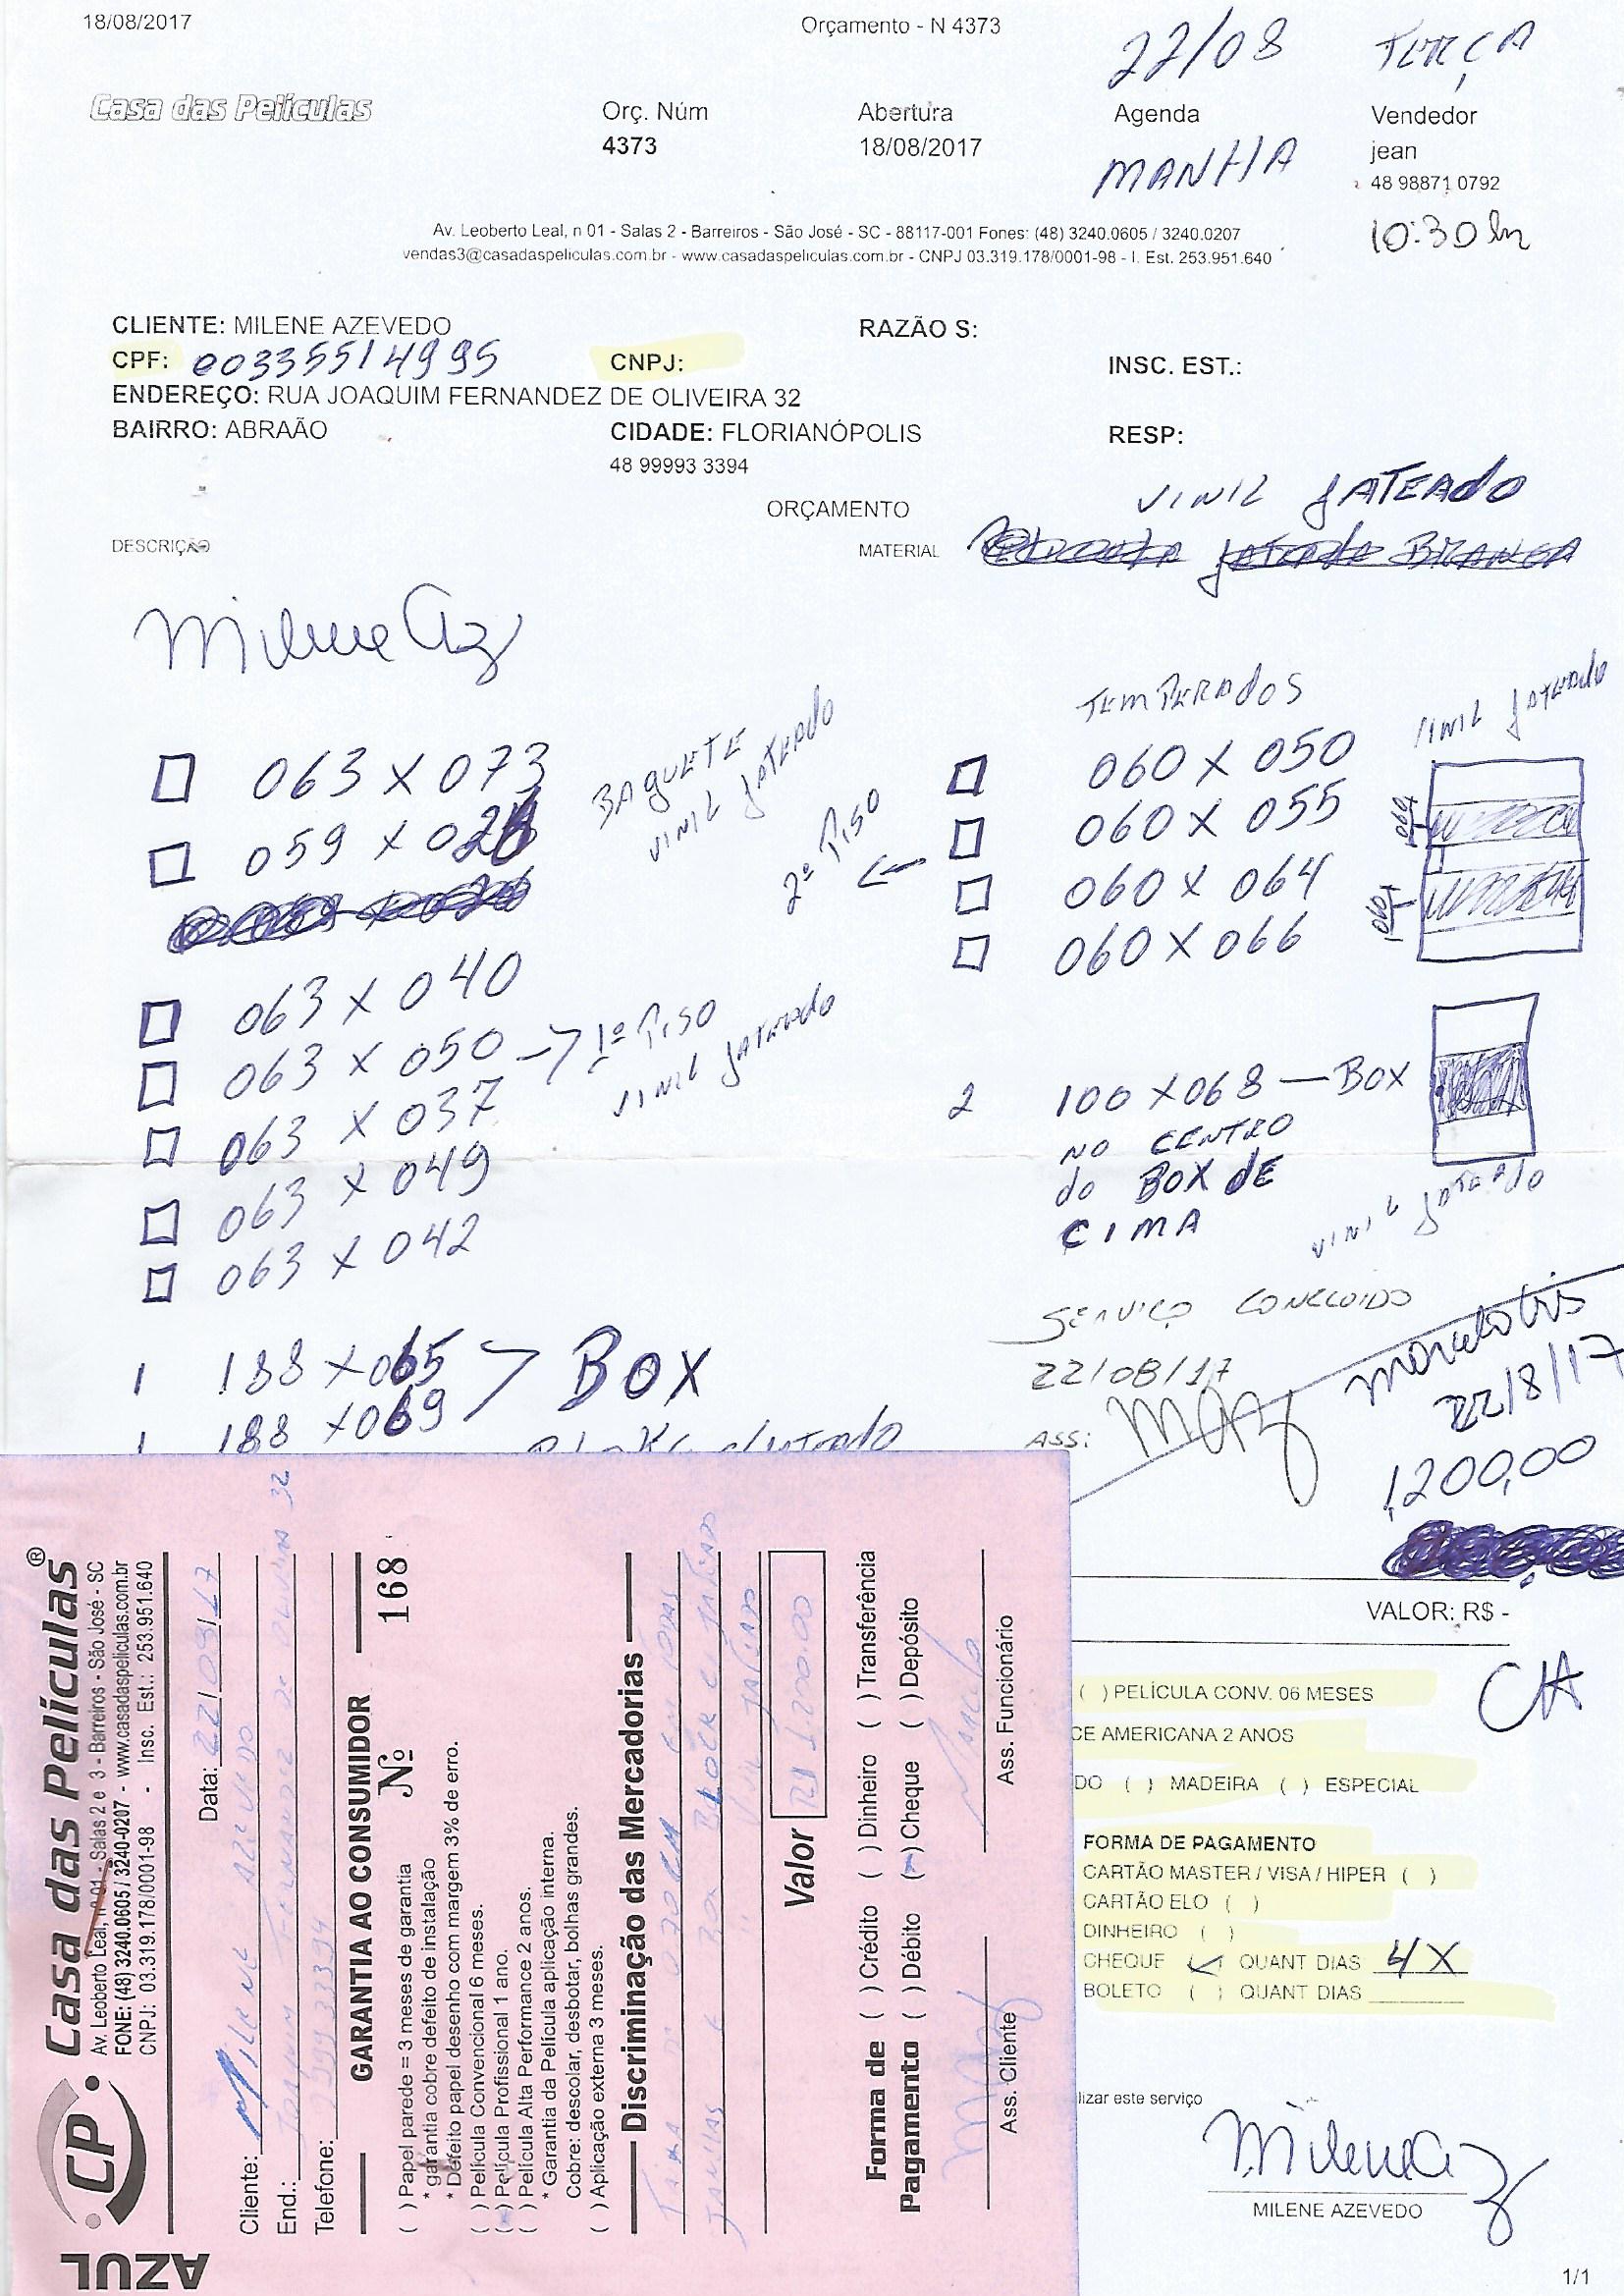 18/08/2017
Orçamento - N 4373
22/08 TERÇA
Casa das Películas
Orç. Núm
4373
Abertura
18/08/2017
Agenda
MANHA
Vendedor
jean
48 98871 0792
10:30 hr
Av. Leoberto Leal, n 01 - Salas 2 - Barreiros - São José - SC - 88117-001 Fones: (48) 3240.0605 / 3240.0207
vendas3@casadaspeliculas.com.br - www.casadaspeliculas.com.br - CNPJ 03.319.178/0001-98 - I. Est. 253.951.640
CLIENTE: MILENE AZEVEDO
RAZÃO S:
CPF: 00335514995
CNPJ:
INSC. EST.:
ENDEREÇO: RUA JOAQUIM FERNANDEZ DE OLIVEIRA 32
BAIRRO: ABRAÃO
CIDADE: FLORIANÓPOLIS
RESP:
48 99993 3394
ORÇAMENTO
VINIL JATEADO
DESCRIÇÃO
MATERIAL
Milene Az
063 X 073
059 X
BAGUETE
VINIL JATEADO
063 X 040
063 X 050 -> 1º PISO
VINIL JATEADO
063 X 037
063 X 049
063 X 042
1 188 X 065 > BOX
1 188 X 069
TEMPERADOS
VINIL JATEADO
060 X 050
060 X 055
2º PISO <-
060 X 064
060 X 066
060
060
2 100 X 068 - BOX
NO CENTRO
do BOX DE
CIMA
VINIL JATEADO
SERVIÇO CONCLUIDO
22/08/17
ASS: MAz
22/8/17
1200,00
VALOR: R$ -
CH
( ) PELÍCULA CONV. 06 MESES
CE AMERICANA 2 ANOS
DO ( ) MADEIRA ( ) ESPECIAL
FORMA DE PAGAMENTO
CARTÃO MASTER / VISA / HIPER ( )
CARTÃO ELO ( )
DINHEIRO ( )
CHEQUE QUANT DIAS 4X
BOLETO ( ) QUANT DIAS
lizar este serviço
Milene Az
MILENE AZEVEDO
1/1
AZUL
CP Casa das Películas®
Av. Leoberto Leal, nº 01 - Salas 2 e 3 - Barreiros - São José - SC
FONE: (48) 3240.0605 / 3240-0207 - www.casadaspeliculas.com.br
CNPJ: 03.319.178/0001-98 - Insc. Est.: 253.951.640
Data: 22/08/17
Cliente: MILENE AZEVEDO
End.: JOAQUIM FERNANDEZ DE OLIVEIRA 32
Telefone: 99933394
GARANTIA AO CONSUMIDOR
Nº 168
( ) Papel parede = 3 meses de garantia
* garantia cobre defeito de instalação
* Defeito papel desenho com margem 3% de erro.
( ) Película Convencional 6 meses.
( ) Película Profissional 1 ano.
( ) Película Alta Performance 2 anos.
* Garantia da Película aplicação interna.
Cobre: descolar, desbotar, bolhas grandes.
( ) Aplicação externa 3 meses.
Discriminação das Mercadorias
Valor R$ 1.200,00
Forma de Pagamento
( ) Crédito ( ) Dinheiro ( ) Transferência
( ) Débito ( ) Cheque ( ) Depósito
Marcelo
Ass. Cliente
Ass. Funcionário